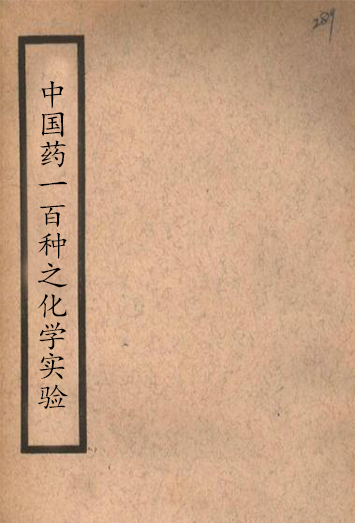 289
中国药一百种之化学实验